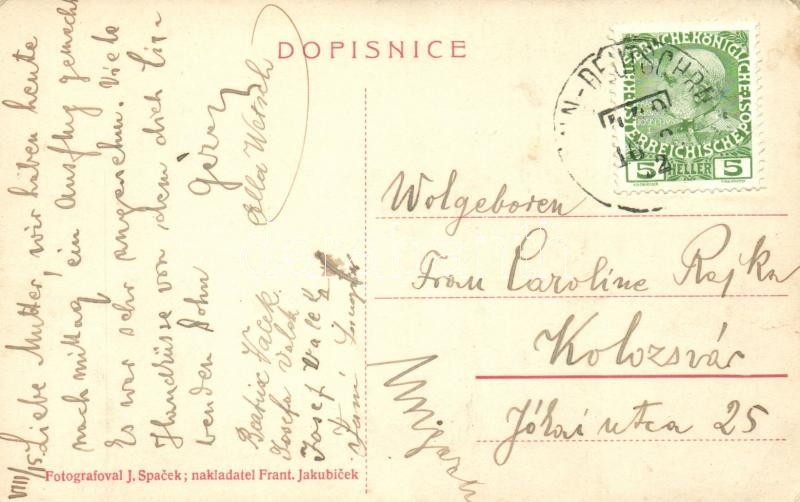 DOPISNICE
VIII/15
Liebe Mutter, wir haben heute
nach mittag ein Ausflug gemacht
Es war sehr angenehm. Viele
Handküsse von dem dich lie-
benden Sohn
Géza
Ella
Beatrix Vacek
Josefa Valek
Josef Valek
KAISERLICHE KÖNIGLICHE
ÖSTERREICHISCHE POST
5 HELLER 5
Wolgeboren
Frau Caroline Rajka
Kolozsvár
Jókai utca 25
Fotografoval J. Spaček; nakladatel Frant. Jakubiček